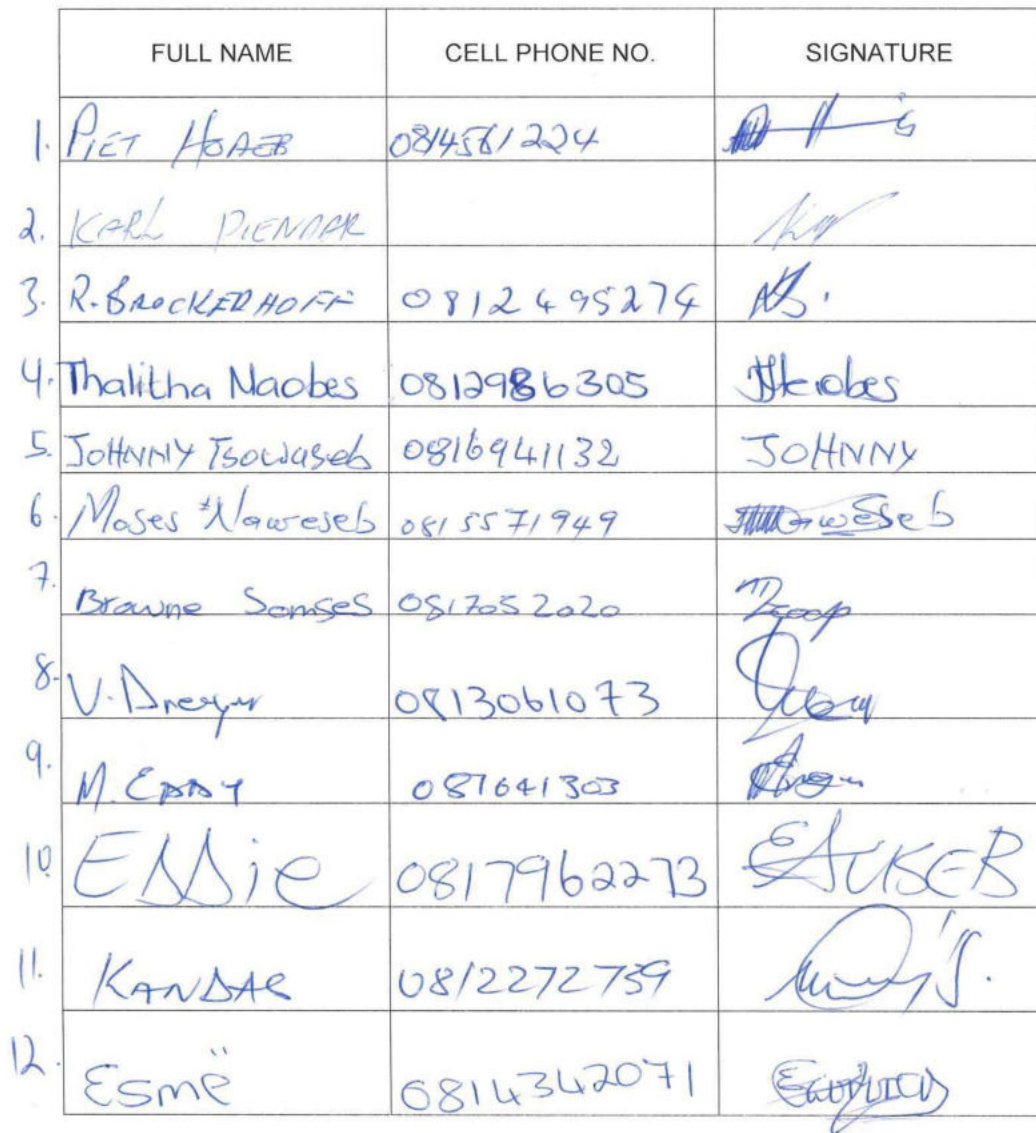 FULL NAME CELL PHONE NO. SIGNATURE
1. PIET HOAEB 0814561224
2. KARL DIENDAR
3. R. BROCKERHOFF 0812495274
4. Thalitha Naobes 0812986305
5. JOHNNY Tsowaseb 0816941132 JOHNNY
6. Moses Naweseb 0815571949
7. Browne Somses 0817052020
8. V. Dreyer 0813061073
9. M. EDDY 081641303
10 Essie 0817962273
11. KANDAS 0812272759
12. Esmë 0814342071